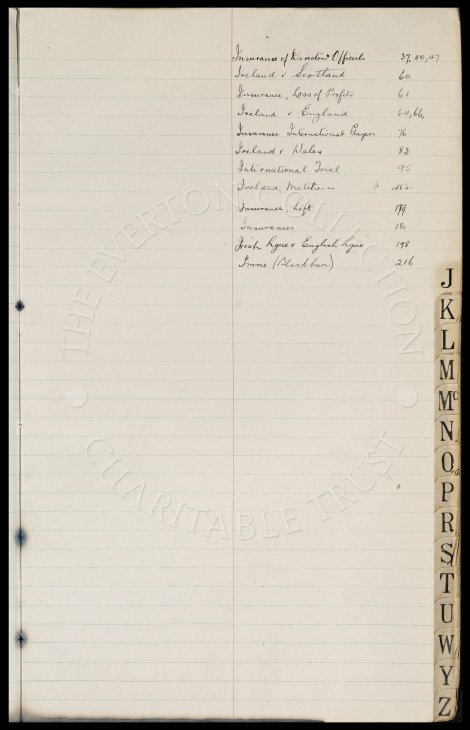 Insurance of Directors & Officials 37, 40, 47
Ireland v Scotland 60
Insurance, Loss of Profits 61
Ireland v England 64, 66,
Insurance International Players 76
Ireland v Wales 83
International Trial 95
Ireland, Matches in
Insurance, Lift
Insurances 180
Irish Lgue v English Lgue 198
(Blackburn) 216
J
K
L
M
Mc
N
O
P
R
S
T
U
W
Y
Z
THE EVERTON COLLECTION
CHARITABLE TRUST